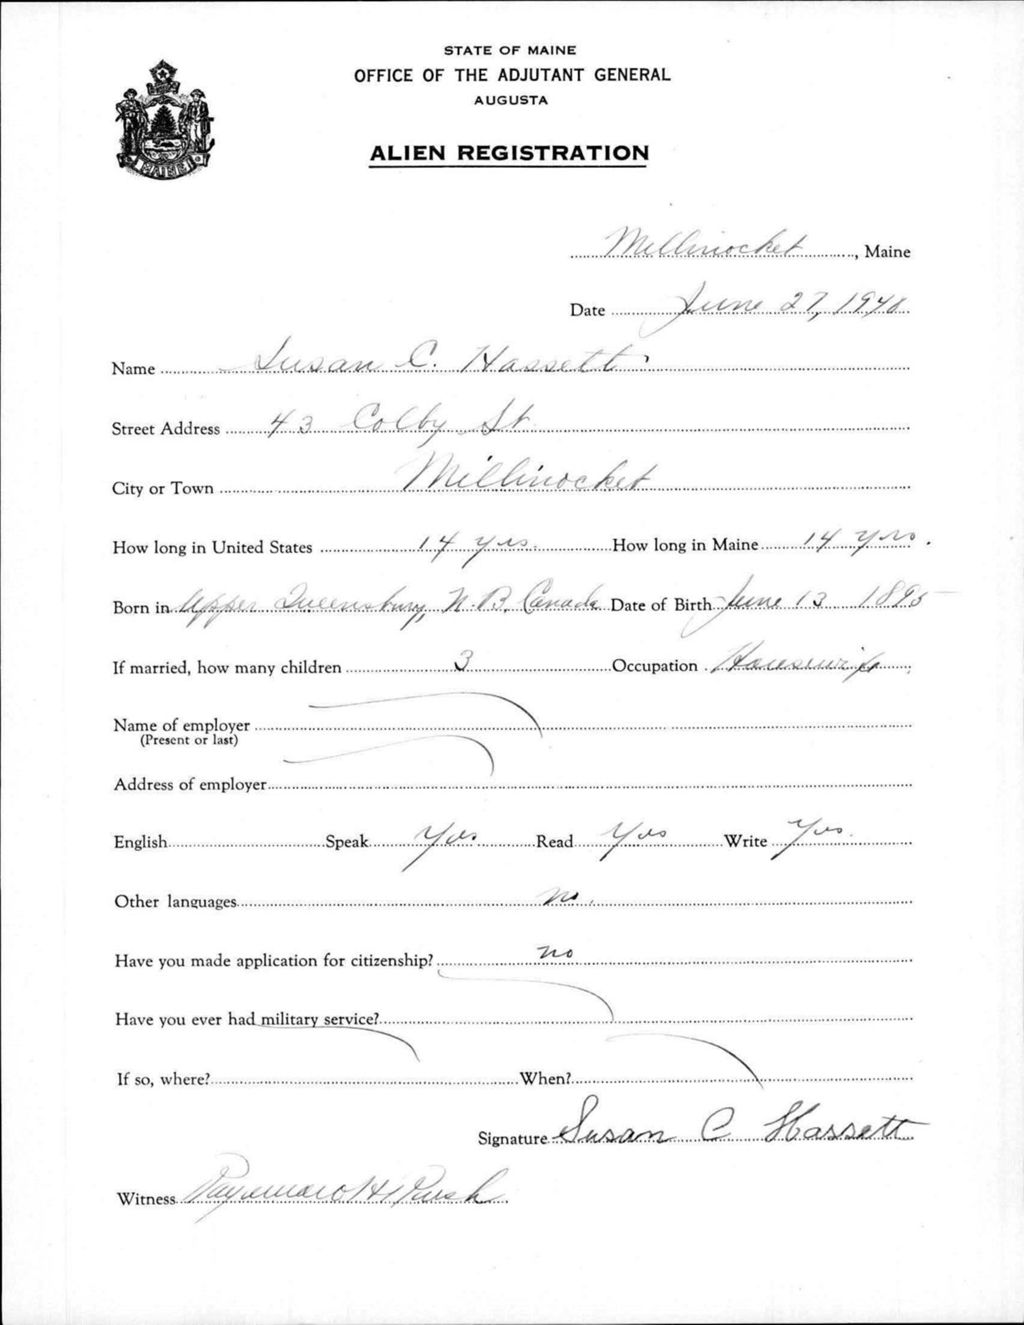 STATE OF MAINE
OFFICE OF THE ADJUTANT GENERAL
AUGUSTA
ALIEN REGISTRATION
MAINE
Millinocket, Maine
Date June 27, 1940
Name Susan C. Hassett
Street Address 43 Colby St
City or Town Millinocket
How long in United States 14 yrs. How long in Maine 14 yrs.
Born in Upper Queensbury, N.B. Canada Date of Birth June 13 1895
If married, how many children 3 Occupation Housewife
Name of employer
(Present or last)
Address of employer
English Speak Yes Read Yes Write Yes.
Other languages no.
Have you made application for citizenship? no
Have you ever had military service?
If so, where? When?
Signature Susan C Hassett
Witness Raymond H Rush